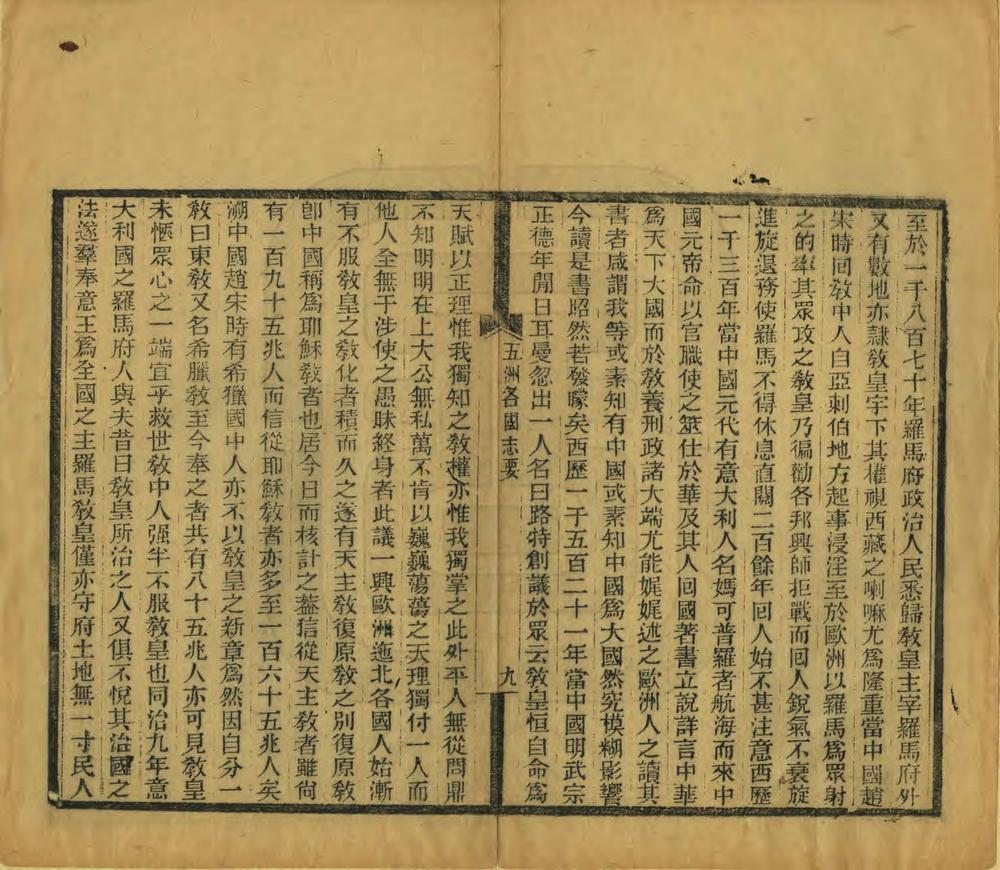 至於一千八百七十年羅馬府政治人民悉歸敎皇主宰羅馬府外
又有數地亦隷敎皇宇下其權視西藏之喇嘛尤爲隆重當中國趙
宋時回敎中人自亞剌伯地方起事浸淫至於歐洲以羅馬爲眾射
之的率其眾攻之敎皇乃徧勸各邦興師拒戰而回人銳氣不衰旋
進旋退務使羅馬不得休息直閱二百餘年回人始不甚注意西歷
一千三百年當中國元代有意大利人名媽可普羅者航海而來中
國元帝命以官職使之筮仕於華及其人回國著書立說詳言中華
爲天下大國而於敎養刑政諸大端尤能娓娓述之歐洲人之讀其
書者咸謂我等或素知有中國或素知中國爲大國然究模糊影響
今讀是書昭然若發矇矣西歷一千五百二十一年當中國明武宗
正德年閒日耳曼忽出一人名曰路特創議於眾云敎皇恒自命爲
五洲各國志要
九
天賦以正理惟我獨知之敎權亦惟我獨掌之此外平人無從問鼎
不知明明在上大公無私萬不肯以巍巍蕩蕩之天理獨付一人而
他人全無干涉使之愚昧終身者此議一興歐洲迤北各國人始漸
有不服敎皇之敎化者積而久之遂有天主敎復原敎之別復原敎
卽中國稱爲耶穌敎者也居今日而核計之葢信從天主敎者雖尙
有一百九十五兆人而信從耶穌敎者亦多至一百六十五兆人矣
溯中國趙宋時有希獵國中人亦不以敎皇之新章爲然因自分一
敎曰東敎又名希臘敎至今奉之者共有八十五兆人亦可見敎皇
未愜眾心之一端宜乎救世敎中人强半不服敎皇也同治九年意
大利國之羅馬府人與夫昔日敎皇所治之人又俱不悅其治國之
法遂羣奉意王爲全國之主羅馬敎皇僅亦守府土地無一寸民人